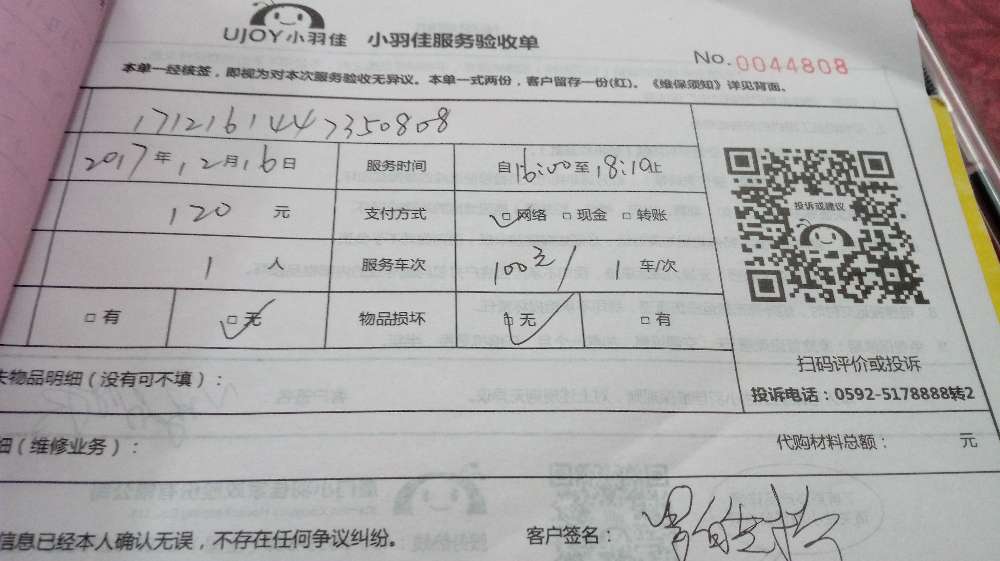 UJOY小羽佳 小羽佳服务验收单
No. 0044808
本单一经核签，即视为对本次服务验收无异议。本单一式两份，客户留存一份(红)。《维保须知》详见背面。
1712161447350808
2017年12月16日 服务时间 自16:00至18:19止
120 元 支付方式 □网络 □现金 □转账
1 人 服务车次 100元/1车/次
□有 □无 物品损坏 □无 □有
投诉或建议
扫码评价或投诉
投诉电话：0592-5178888转2
失物品明细（没有可不填）：
细（维修业务）： 代购材料总额： 元
信息已经本人确认无误，不存在任何争议纠纷。 客户签名：